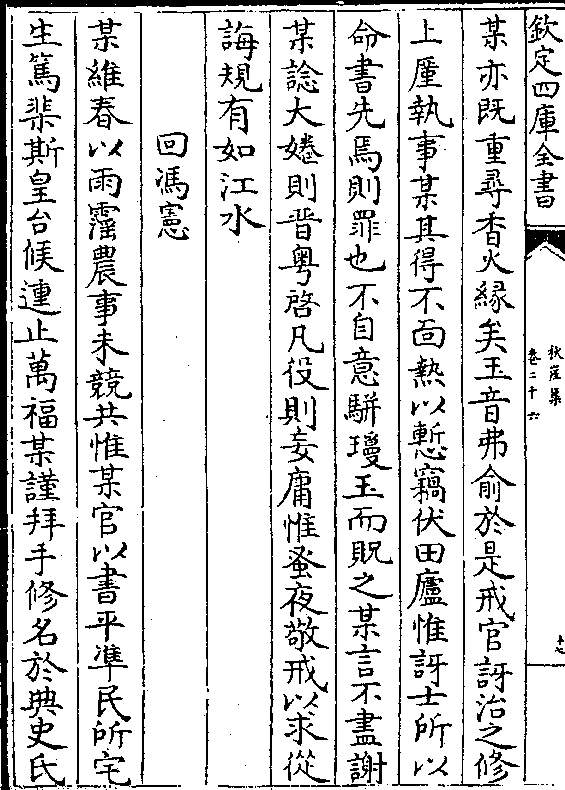 欽定四庫全書
秋崖集
卷二十六
某亦既重尋香火縁矣玉音弗俞於是戒官訝治之修
上厪執事某其得不面熱以慙竊伏田廬惟訝士所以
命書先焉則罪也不自意駢瓊玉而貺之某言不盡謝
某諗大婘則晋粤啓凡役則妄庸惟蚤夜敬戒以求從
誨規有如江水
回馮憲
某維春以雨霪農事未競共惟某官以書平準民所宅
生篤棐斯皇台候連止萬福某謹拜手修名於典史氏